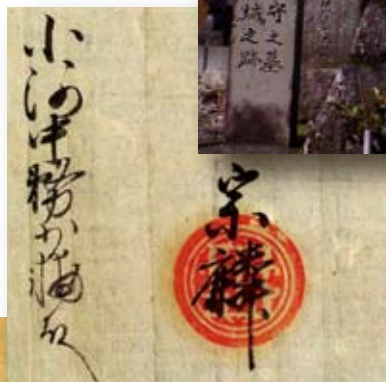 守之墓
城之跡
宗麟
小河中務少輔殿